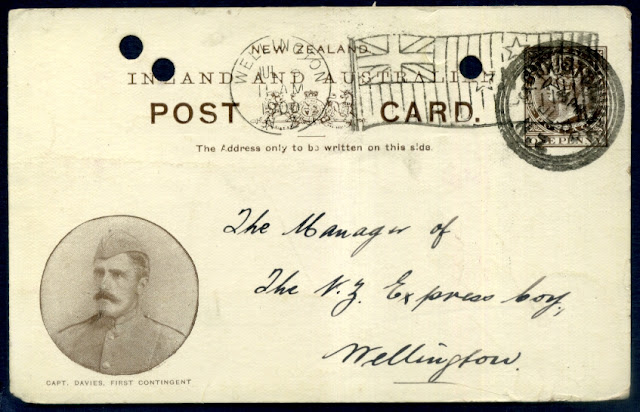 NEW ZEALAND
INLAND AND AUSTRALIA
POST CARD.
WELLINGTON
11 AM
1900
The Address only to be written on this side.
The Manager of
The N.Z. Express Coy.,
Wellington.
CAPT. DAVIES, FIRST CONTINGENT